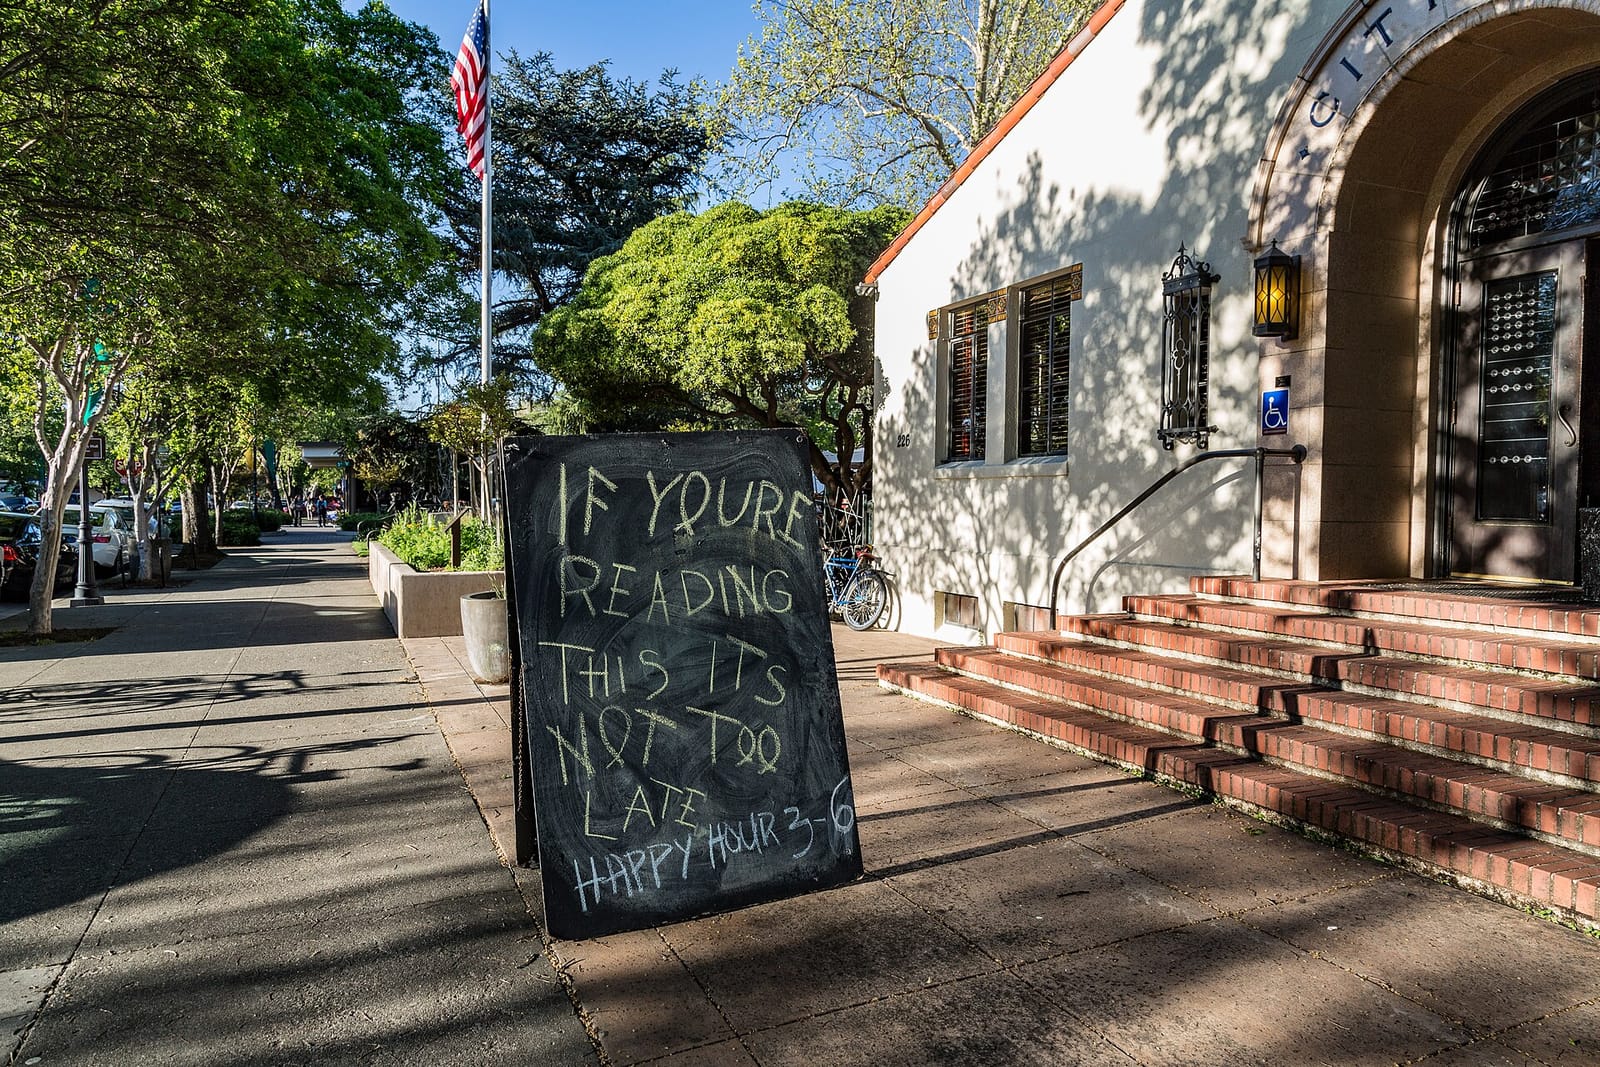 IF YOURE
READING
THIS ITS
NOT TOO
LATE
HAPPY HOUR 3-6
CIT
226